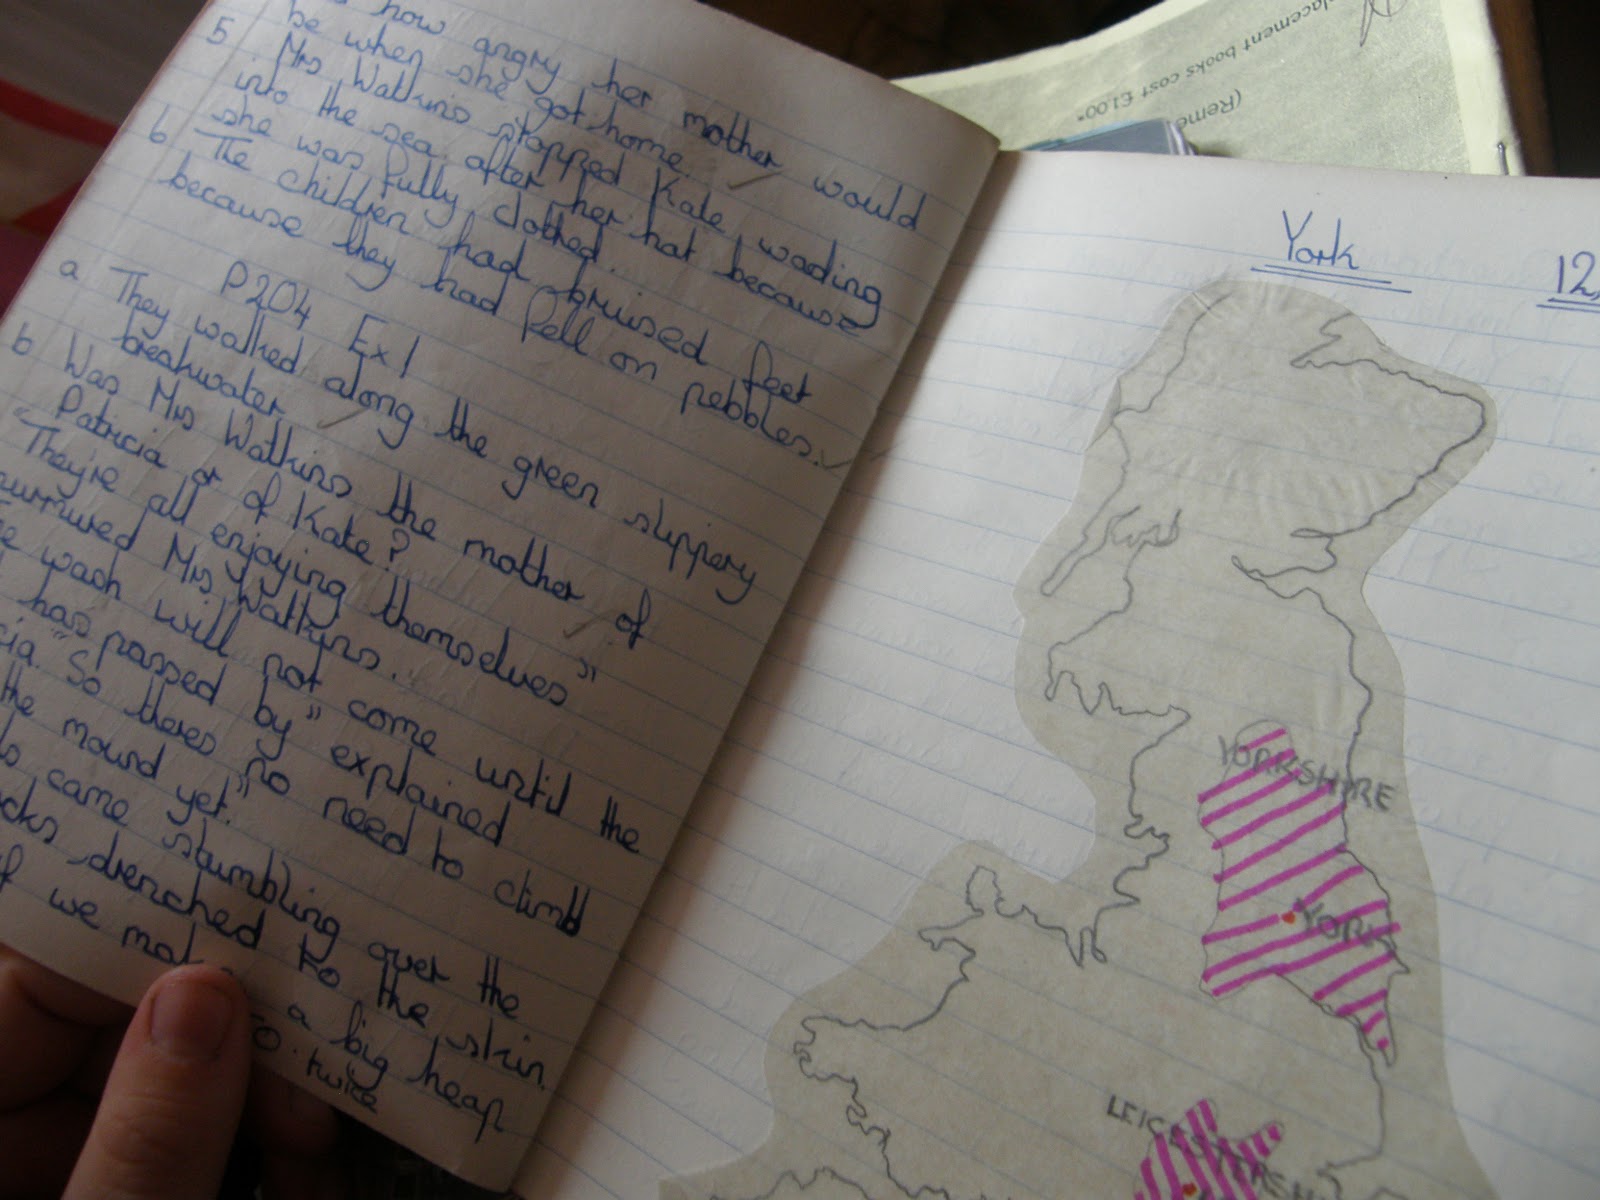 how angry her mother would
be when she got home.
5 Mrs Watkins stopped Kate wading
into the sea after her hat because
she was fully clothed.
6 The children had bruised feet
because they had fell on pebbles.
P204 Ex 1
a They walked along the green slippery
breakwater
b Was Mrs Watkins the mother of
Patricia or of Kate?
"They're all enjoying themselves"
murmured Mrs Watkins.
wash will not come until the
has passed by" explained
So theres no need to climb
the mound yet."
came stumbling over the
drenched to the skin.
if we a big heap
twice
York
12
YORKSHIRE
YORK
LEICESTERSH
(Reme
placement books cost £1.00*